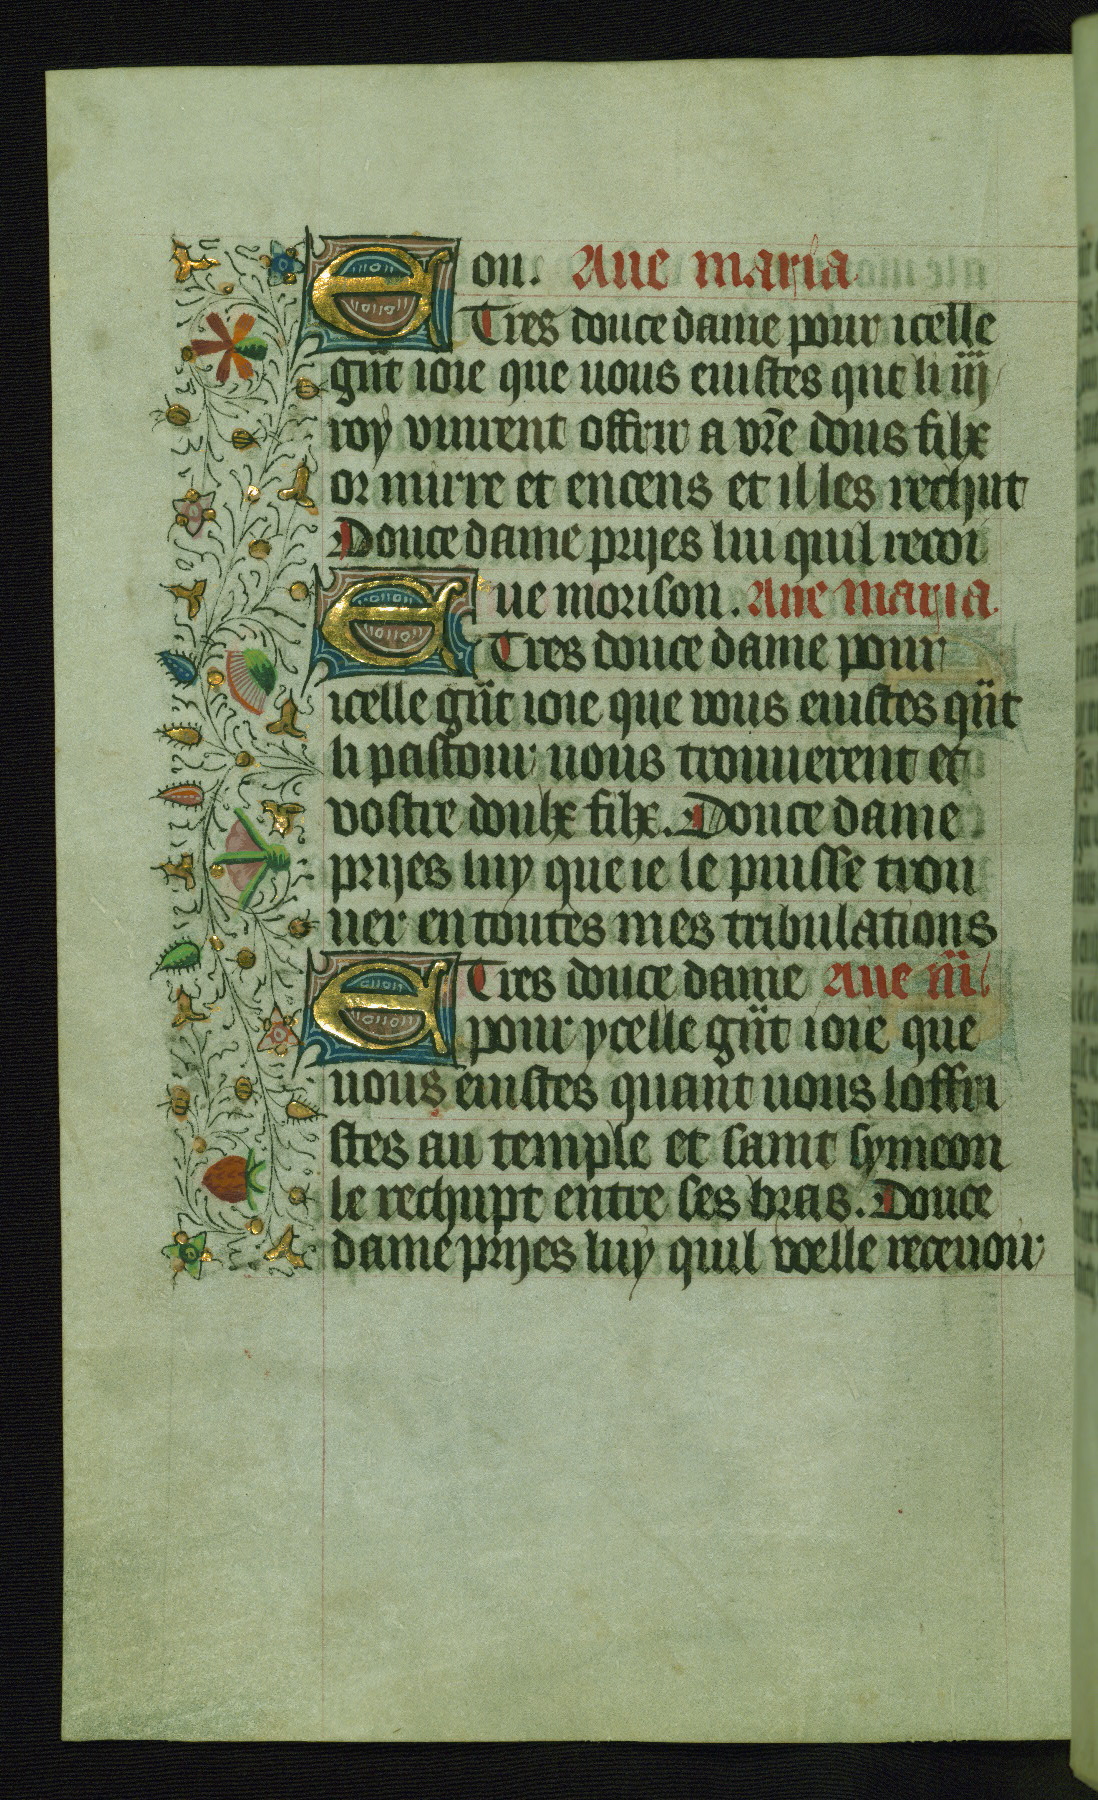 on. Aue maria
E Tres douce dame pour icelle
gñt ioie que uous euistes qñt li iij
roy vinrent offrir a vr̄e dous filx
or mirre et encens et il les rechut
Douce dame prijes lui quil recoi
ue morison. Aue maria
E Tres douce dame pour
icelle gñt ioie que vous euistes qñt
li pastour uous trouuerent et
vostre doulx filx. Douce dame
prijes luy que ie le puisse trou
uer en toutes mes tribulations
E Tres douce dame Aue m̄
pour ycelle gñt ioie que
uous euistes quant uous loffri
stes au temple et saint symeon
le rechupt entre ses bras. Douce
dame prijes luy quil voelle receuoir